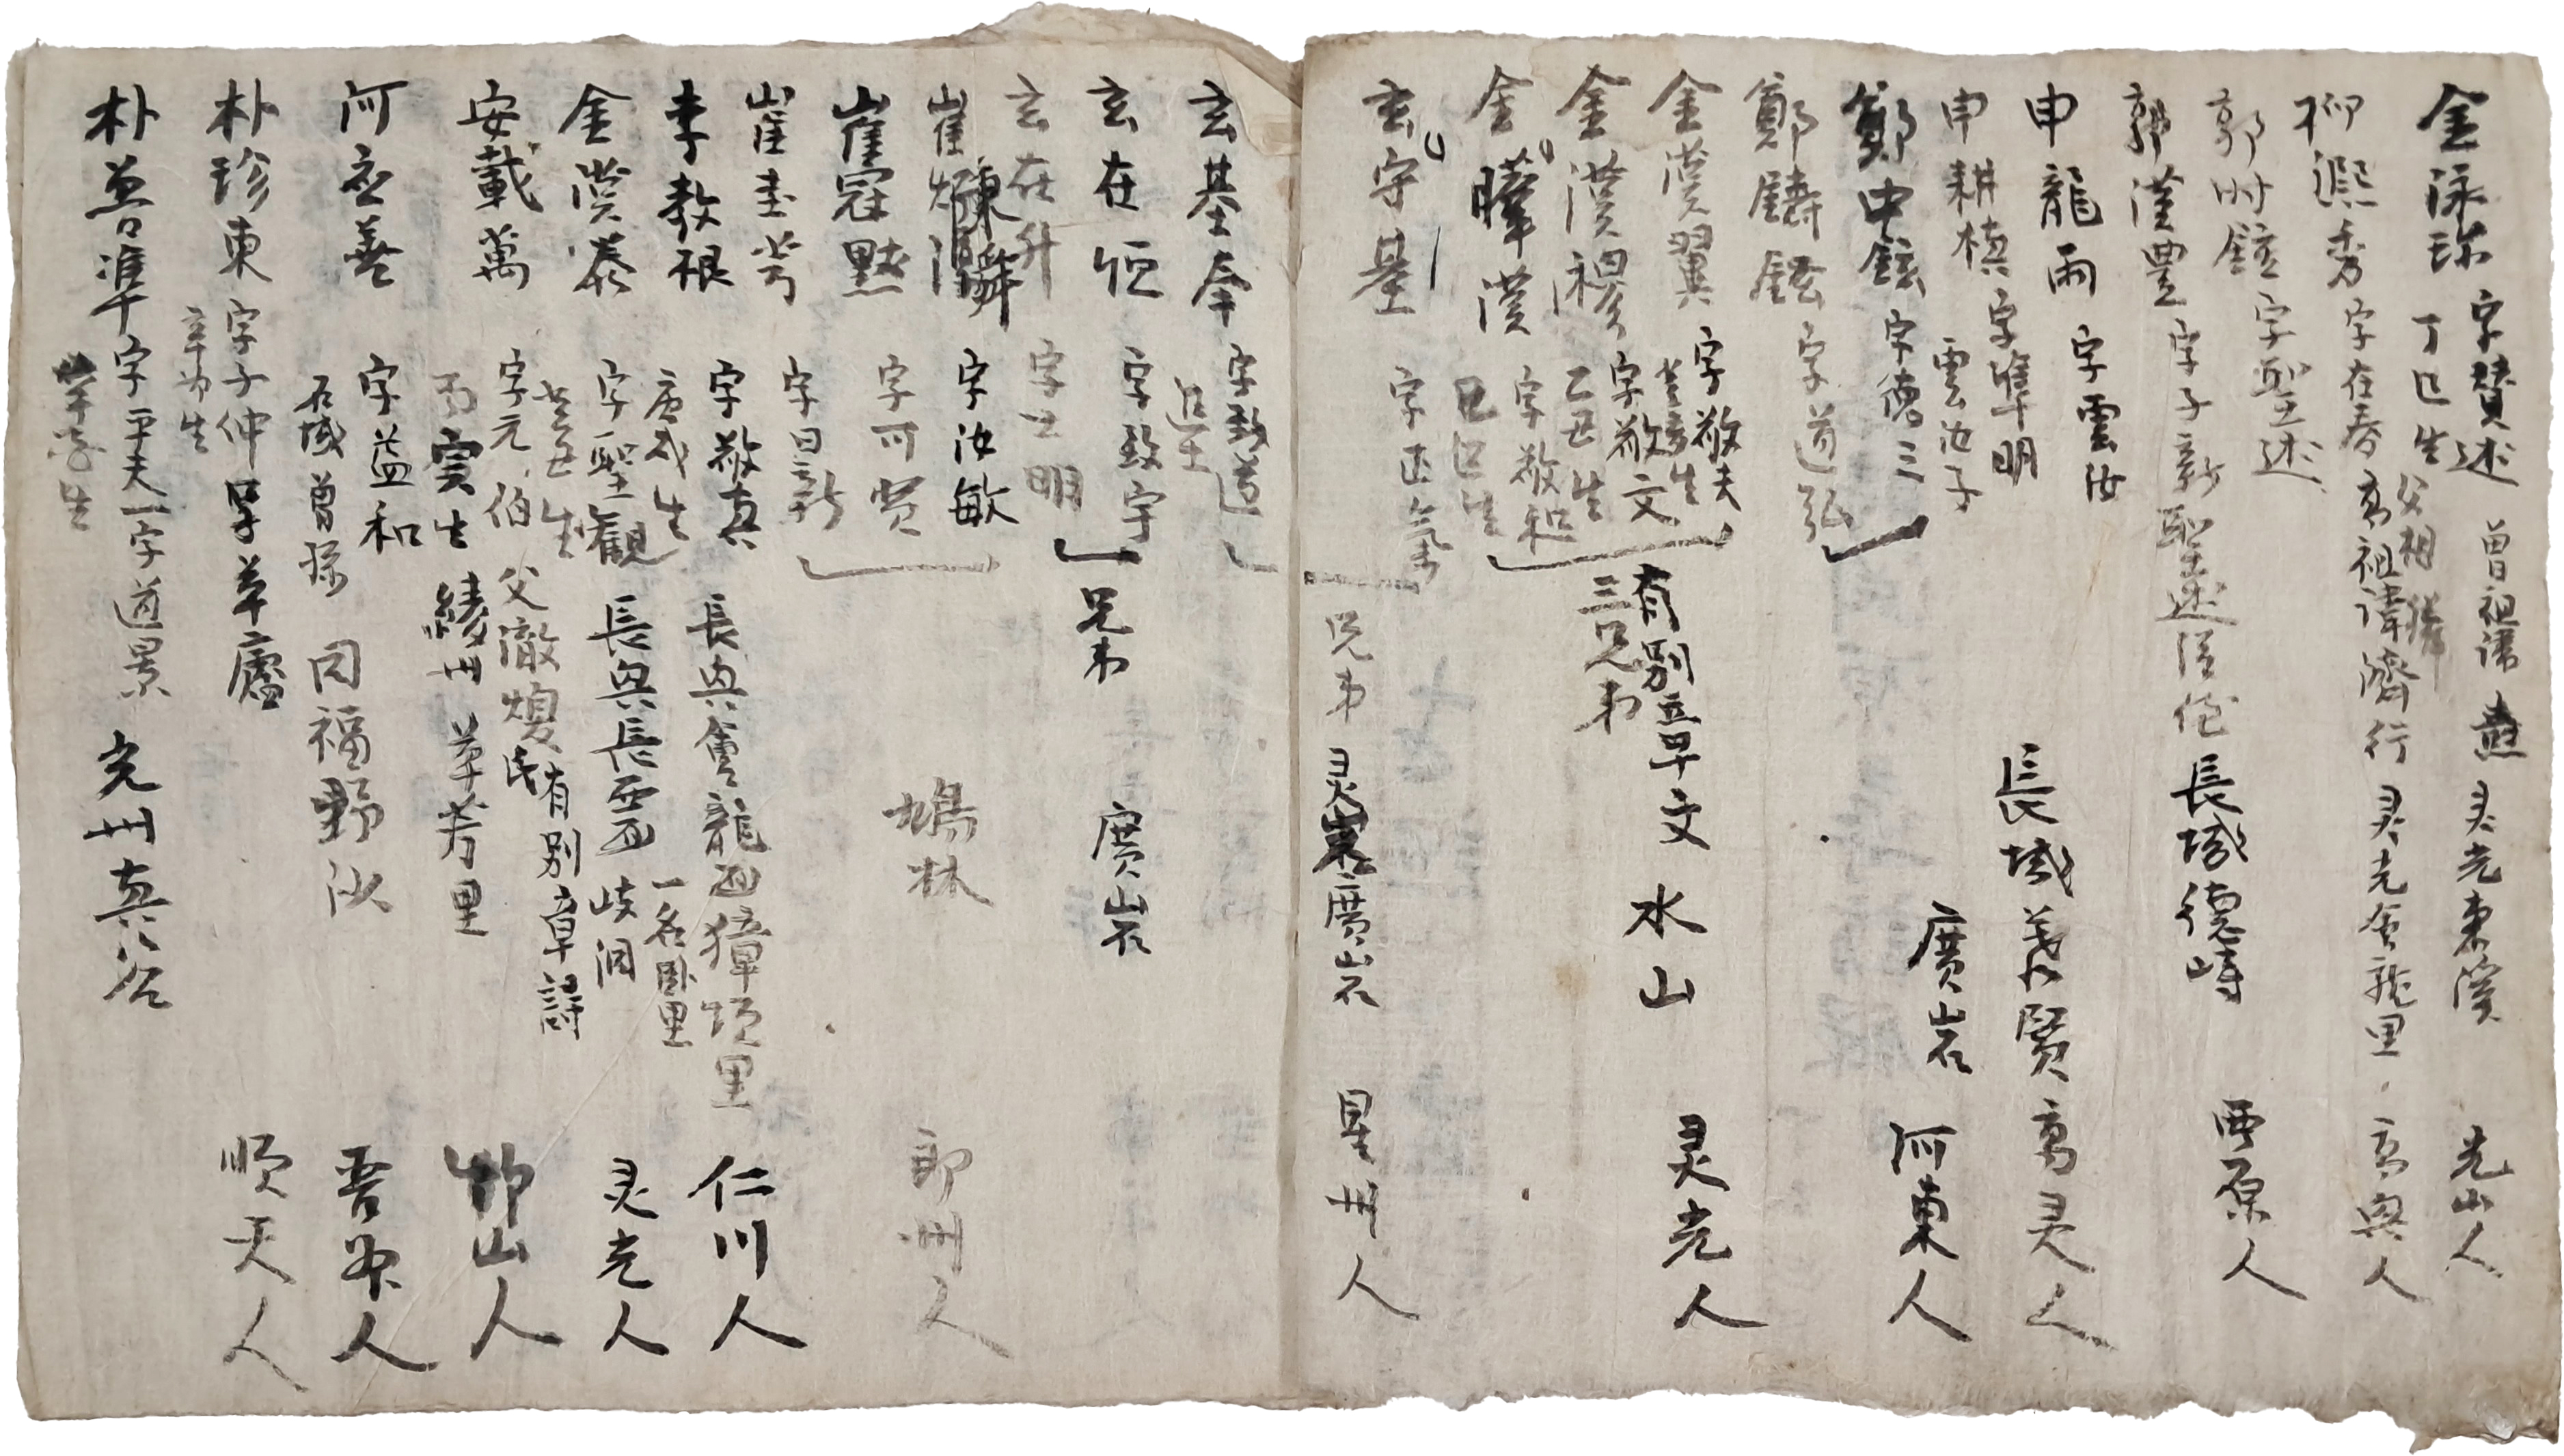 金泳珎 字贊述 丁巳生 父相麟 曾祖諱燾 灵光東溪 光山人
柳漑秀 字在春 高祖諱濟行 灵光舍龍里 高興人
郭時鎡 字聖述
郭漢豊 字子新 聖述 長城德峙 西原人
申龍雨 字雲汝
申耕植 字準明 雲汝子 長城義賢 高灵人
鄭中鉉 字德三 廣岩 河東人
鄭鑄鉉 字道弘
金漢翼 字敬夫 生 有別章文 水山 灵光人
金漢穆 字敬文 乙丑生 三兄弟
金曄漢 字敬和 己巳生
玄宇基 字正 兄弟 灵 廣岩 星州人
玄基奎 字致道
玄在恒 字致宇 兄弟 廣岩
玄在升 字士明
崔 字汝敏
崔冠默 字可賢 鳩林 郎州人
崔圭 字日新
李敎根 字敬真 庚戌生 長興會龍面獐項里 仁川人
金漢泰 字聖觀 長興長西面 岐洞 一名卧里 灵光人
安載萬 字元伯 父澈煥氏有別章詩 丙寅生 綾州草芳里 竹山人
河應善 字益和 石城曾孫 同福野沙 晋州人
朴珍東 字子仲 号草廬 辛卯生 順天人
朴普準 字平夫 一字道景 辛 生 光州真谷